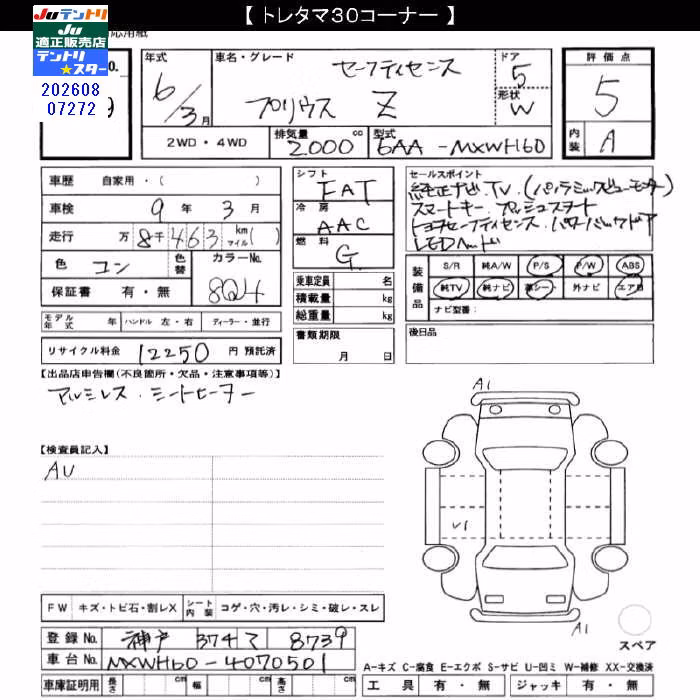 【 トレタマ30コーナー 】
Juテントリ
Ju
適正販売店
テントリ
★スター
202608
07272
年式
6/3月
車名・グレード
セーフティセンス
プリウス Z
ドア
5
形状
W
評価点
5
内装
A
2WD・4WD
排気量
2000 cc
型式
6AA-MXWH60
車歴 自家用・( )
車検 9年 3月
走行 万8千463 km マイル( )
色 コン
色替
カラーNo.
8Q4
保証書 有・無
モデル年式 年 ハンドル 左・右 ディーラー・並行
リサイクル料金 12250 円 預託済
シフト
FAT
冷房
AAC
燃料
G
乗車定員 名
積載量 kg
総重量 kg
書類期限
月 日
セールスポイント
純正ナビ.TV.(パノラミックビューモニター)
スマートキー プッシュスタート
トヨタセーフティセンス.パワーバックドア
LEDヘッド
装備品
S/R 純A/W P/S P/W ABS
純TV 純ナビ 革シート 外ナビ エアB
ナビ型番:
後日品
【出品店申告欄(不良箇所・欠品・注意事項等)】
アルミレス.シートヒーター
【検査員記入】
AU
A1
V1
A1
スペア
FW キズ・トビ石・割レX シート内装 コゲ・穴・汚レ・シミ・破レ・スレ
登録No. 神戸 374 マ 8739
車台No. MXWH60-4070501
車庫証明用 長さ cm 幅 cm 高さ cm
A-キズ C-腐食 E-エクボ S-サビ U-凹ミ W-補修 XX-交換済
工具 有・無 ジャッキ 有・無